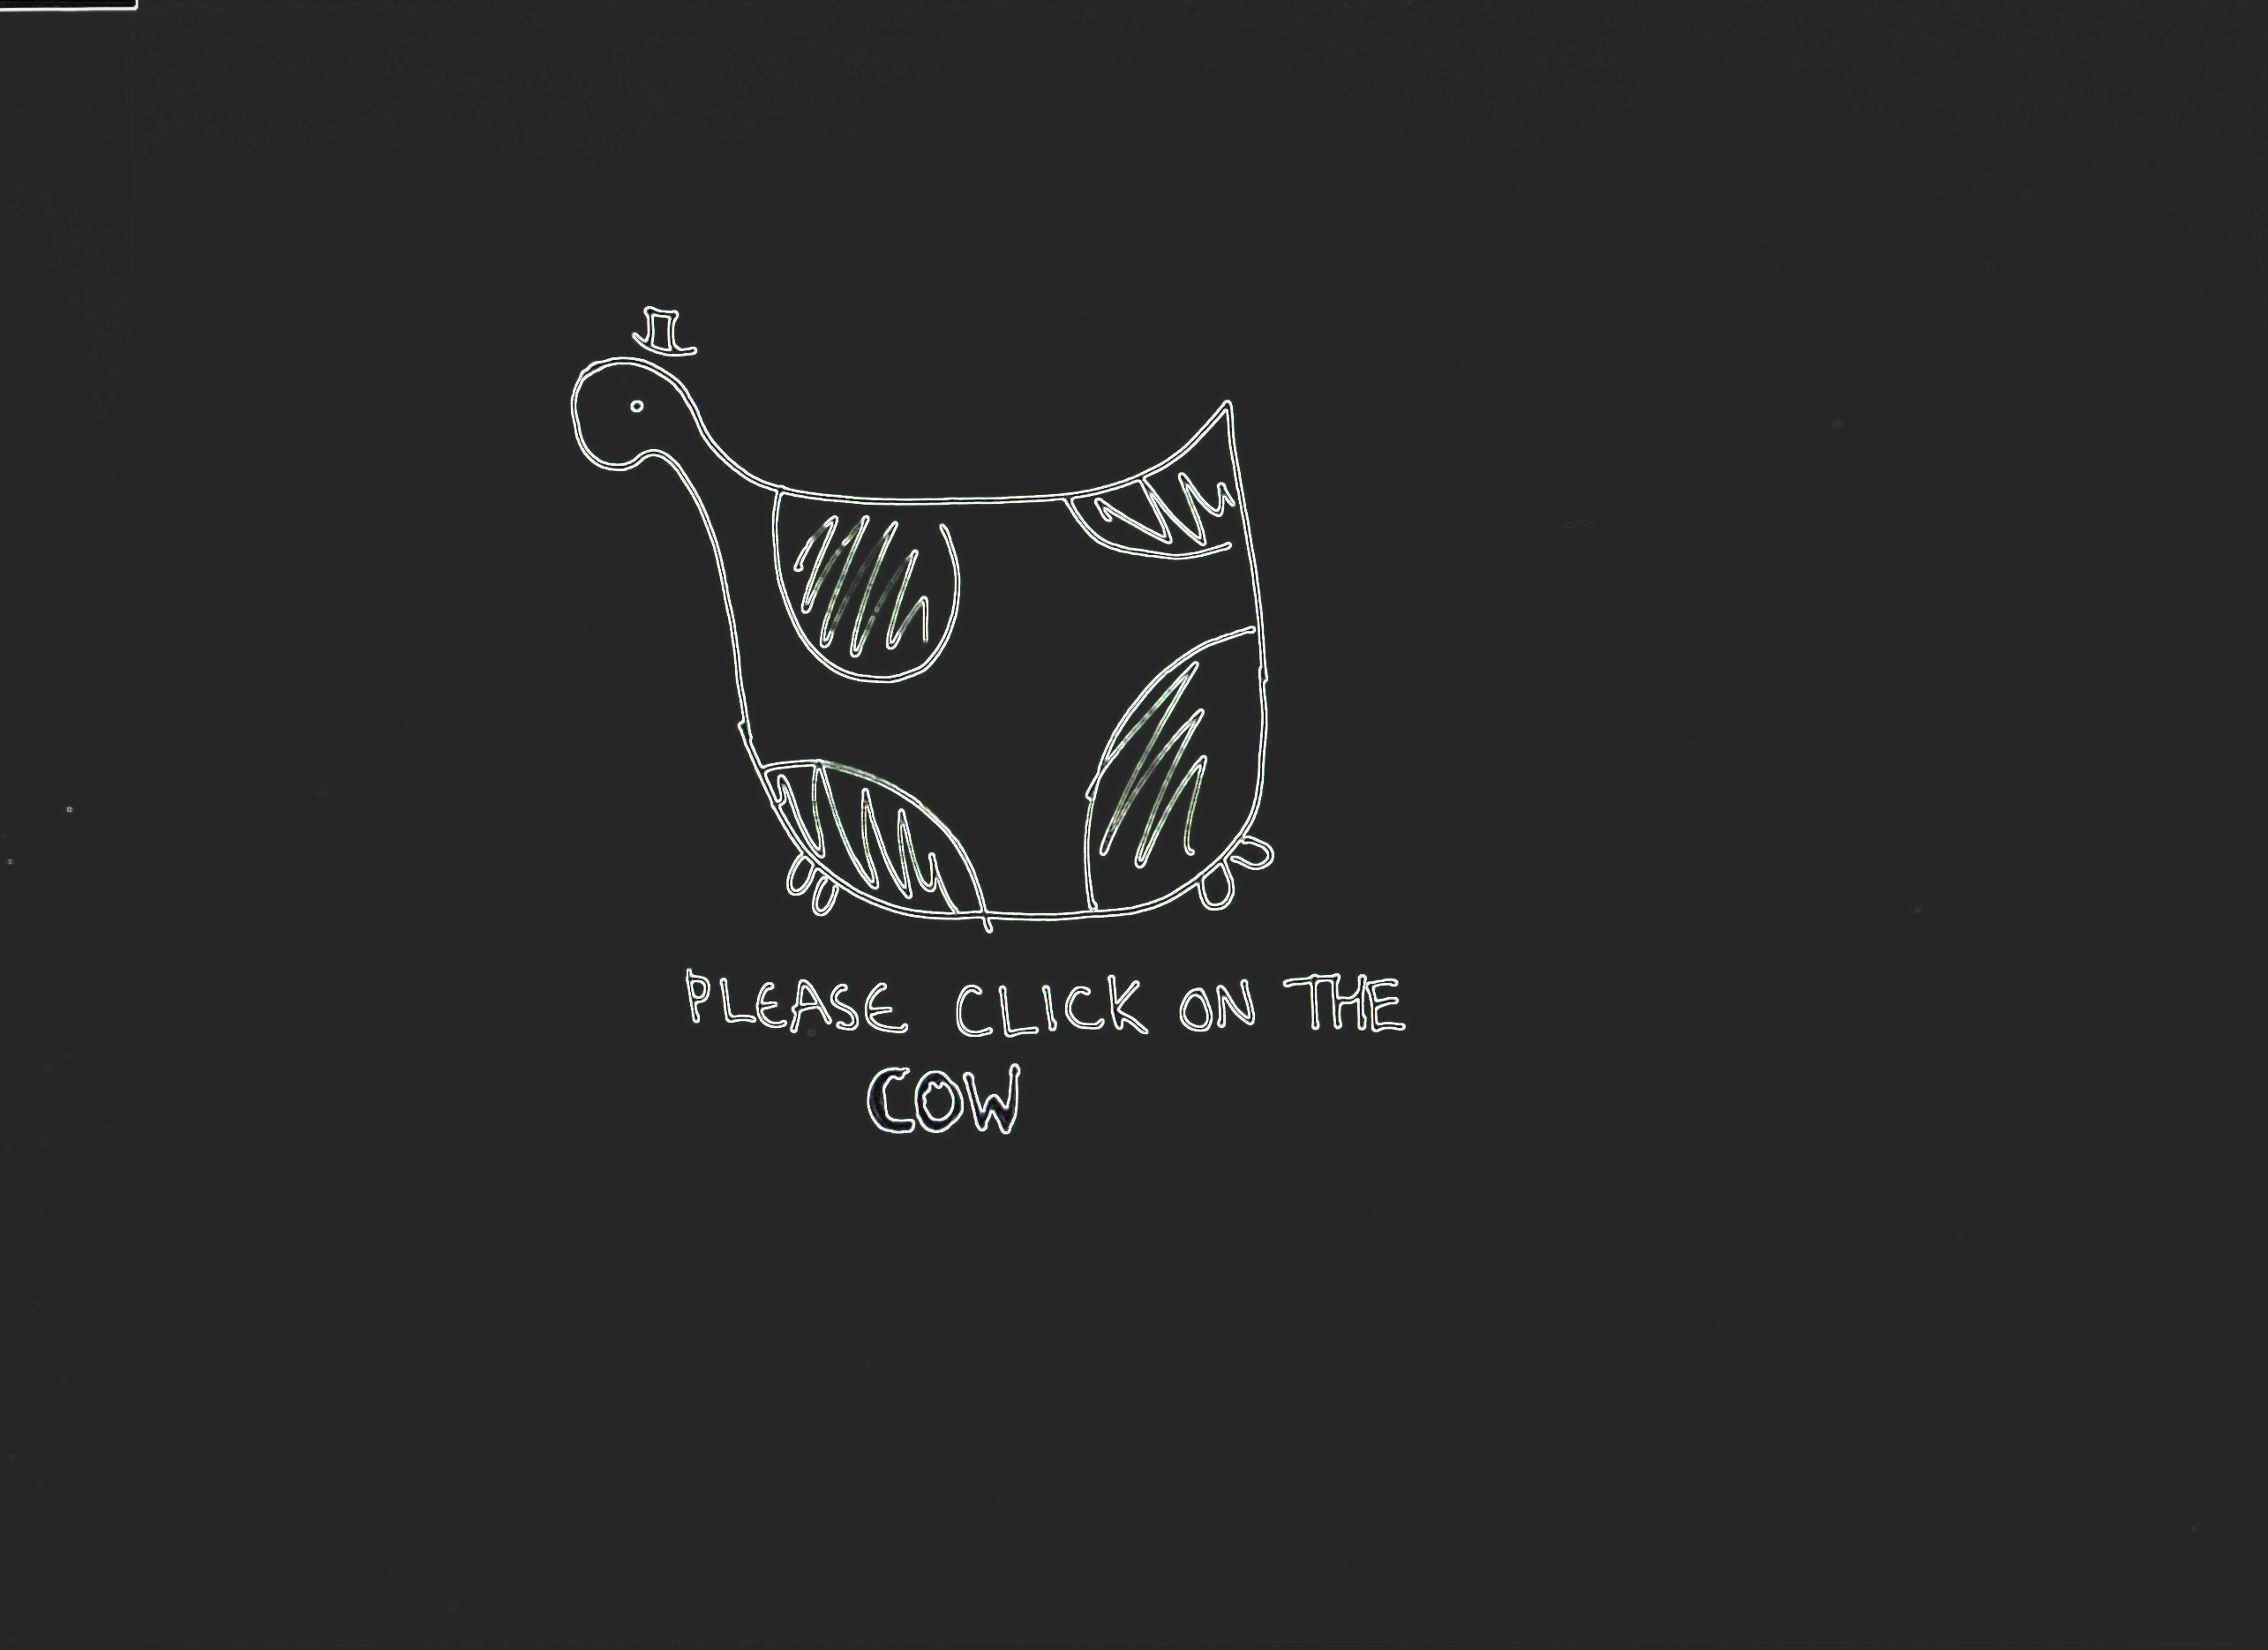 PLEASE CLICK ON THE
COW